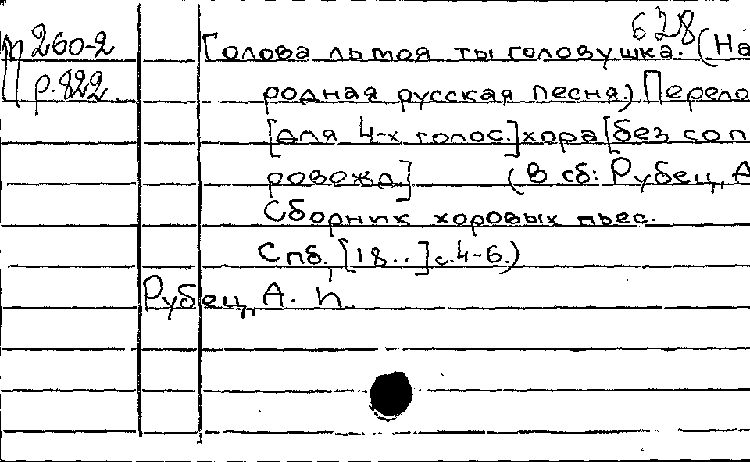 628
П 260-2 Голова ль моя ты головушка. (На
р. 822 родная русская песня) Перело
[для 4-х голос.] хора [без соп
ровожд.] (В сб: Рубец, А
Сборник хоровых пьес.
Спб. [18..] с. 4-6.)
Рубец, А. И.